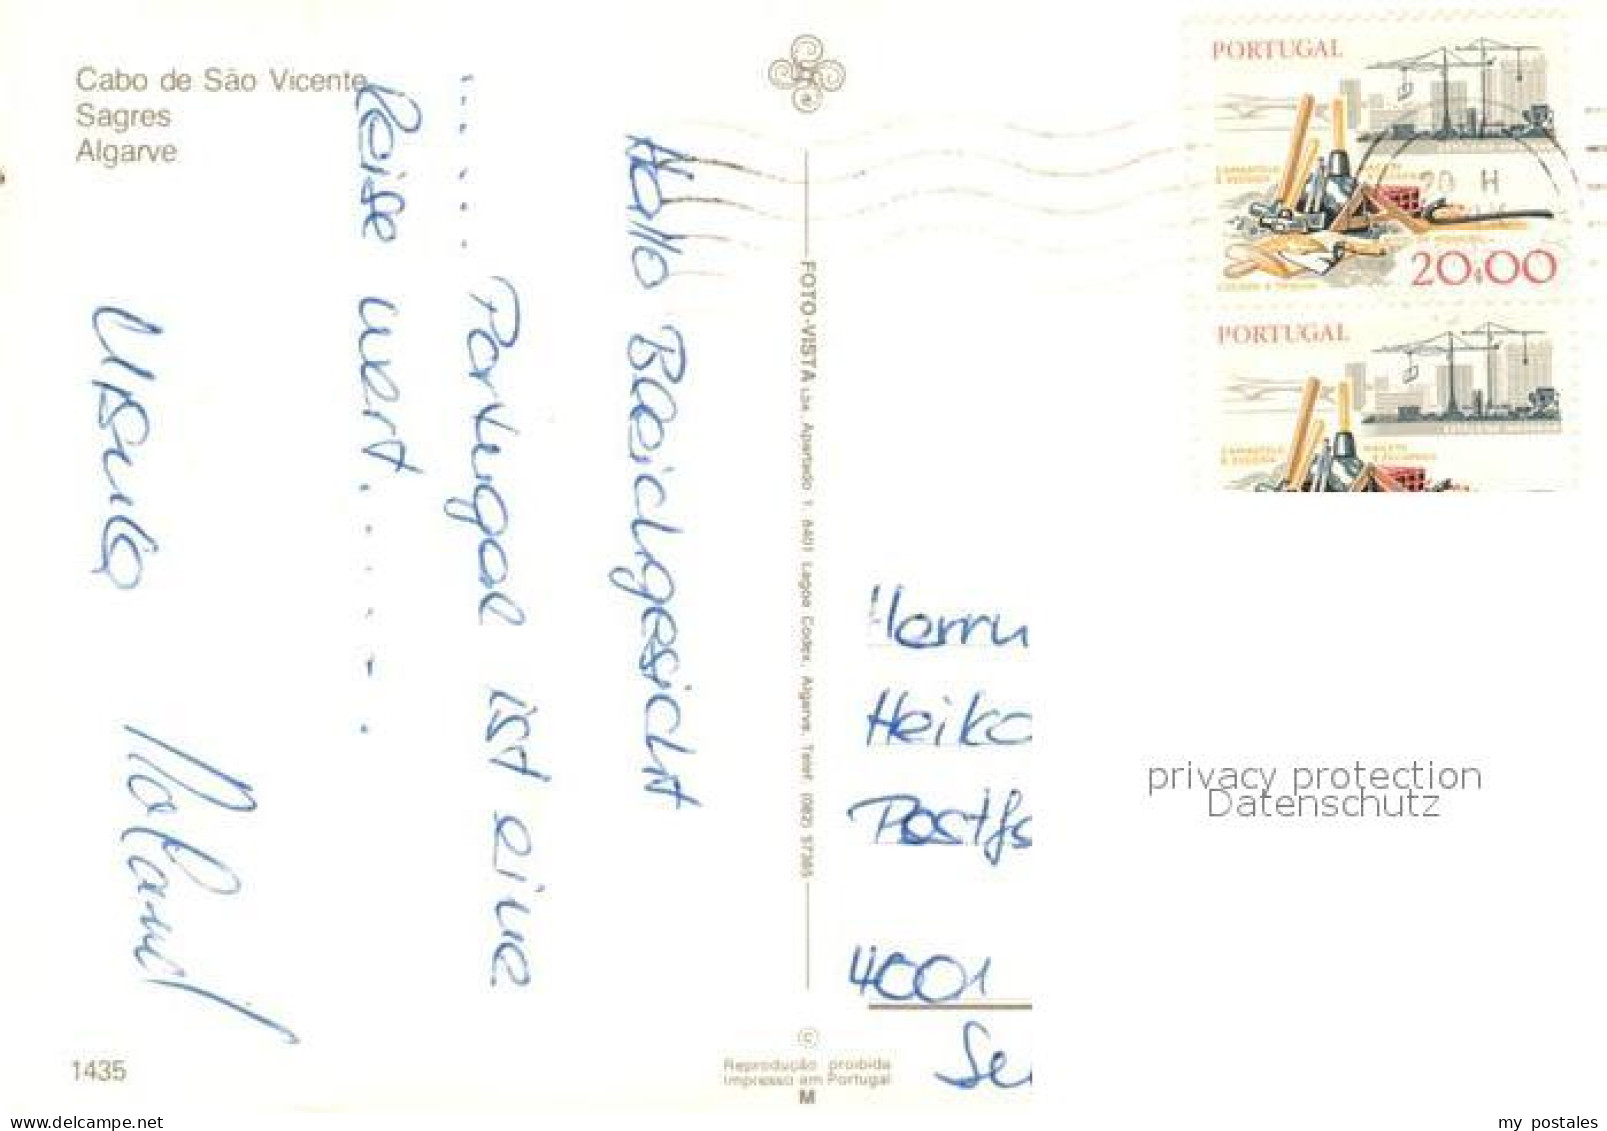 Cabo de São Vicente
Sagres
Algarve
Hallo Bleichgesicht
Portugal ist eine
Reise wert.
Ursula
Roland
1435
FOTO-VISTA LDA. Apartado 1. 8401 Lagoa Codex. Algarve. Telef. (082) 57385
©
Reprodução proibida
Impresso em Portugal
M
PORTUGAL
20 H
20.00
PORTUGAL
Herrn
Heiko
Postfs
4001
privacy protection
Datenschutz
www.delcampe.net
my_postales